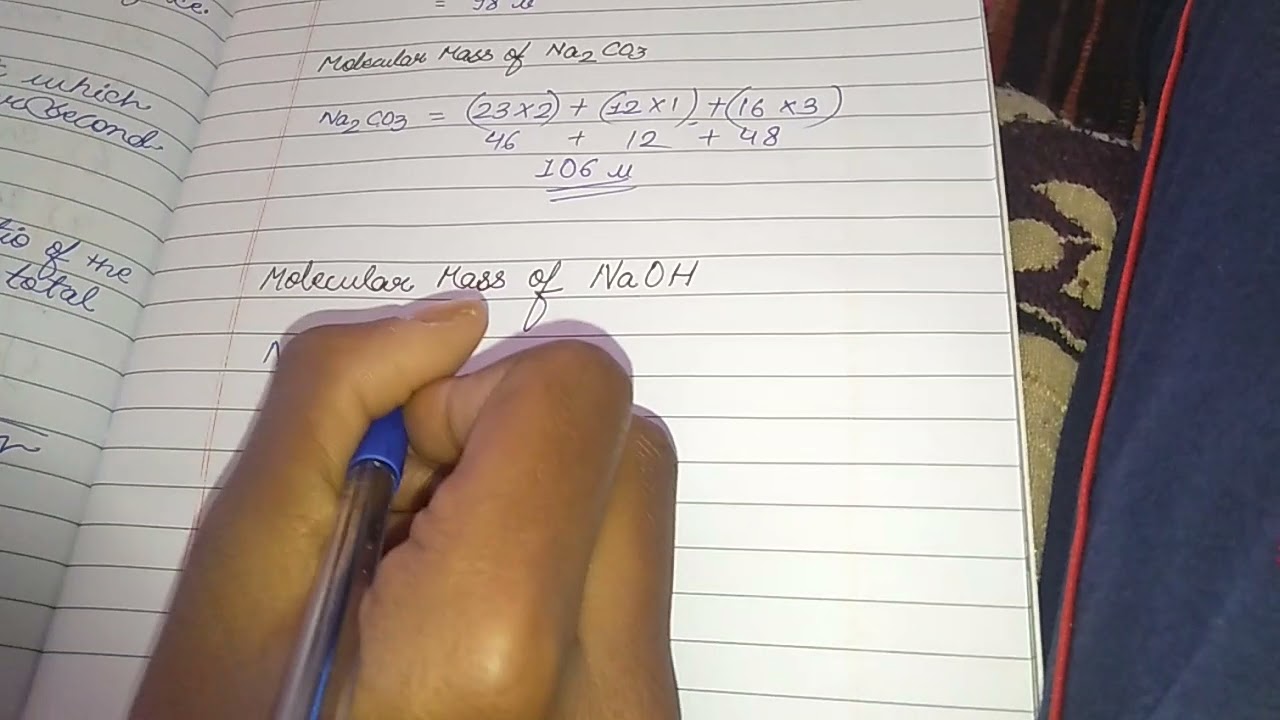 which
second.
of the
total
= 98 u
Molecular Mass of Na2CO3
Na2CO3 = (23×2) + (12×1) + (16×3)
46 + 12 + 48
106 u
Molecular Mass of NaOH
N